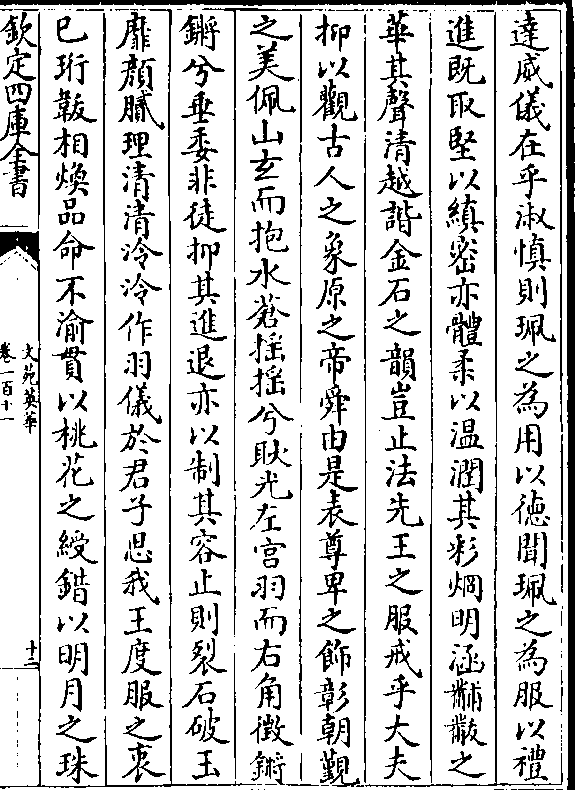 達威儀在乎淑慎則珮之為用以徳聞珮之為服以禮
進既取堅以縝密亦體柔以温潤其彩烱明涵黼黻之
華其聲清越諧金石之韻豈止法先王之服戒乎大夫
抑以觀古人之象原之帝舜由是表尊卑之飾彰朝覲
之美佩山玄而抱水蒼揺揺兮耿光左宫羽而右角徵鏘
鏘兮垂委非徒抑其進退亦以制其容止則裂石破玉
靡顔膩理清清冷冷作羽儀於君子思我王度服之衷
巳珩韍相煥品命不渝貫以桃花之綬錯以明月之珠
欽定四庫全書
文苑英華
卷一百十一
十二